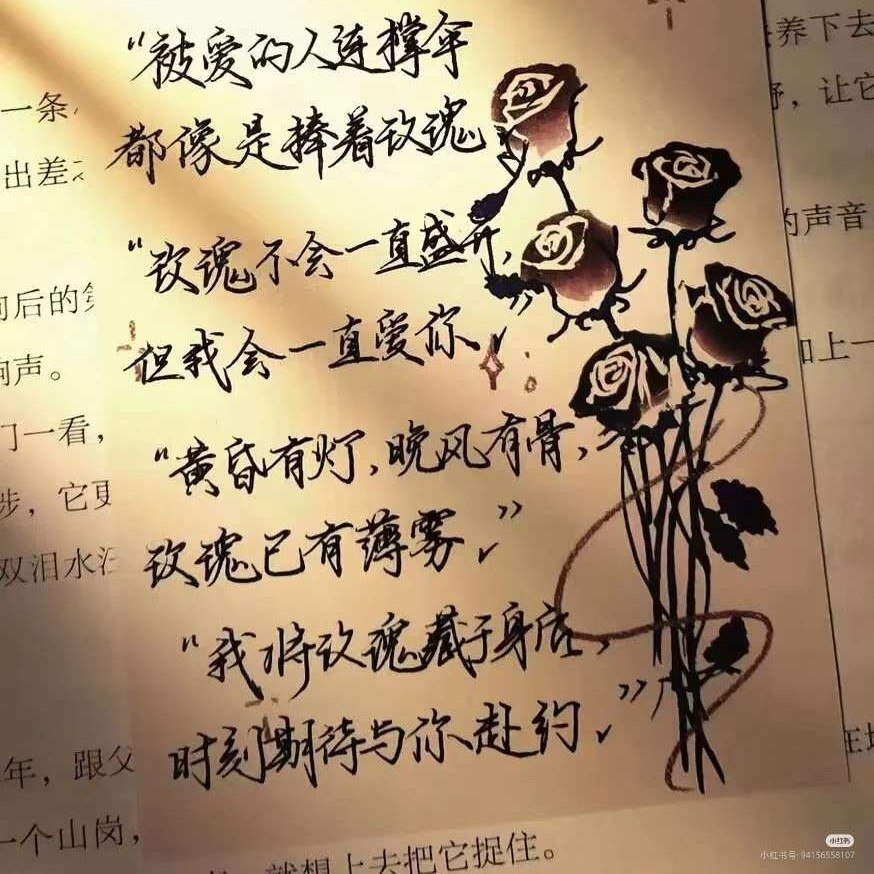 “被爱的人连撑伞
都像是捧着玫瑰
“玫瑰不会一直盛开,
但我会一直爱你.”
“黄昏有灯,晚风有骨,
玫瑰已有薄雾.”
“我将玫瑰藏于身后,
时刻期待与你赴约.”
一条
出差
向后的
响声。
门一看,
步,它更
双泪水汪
年,跟父
一个山岗,
就想上去把它捉住。
养下去
,让它
的声音
加上一
小红书
小红书号: 94156558107